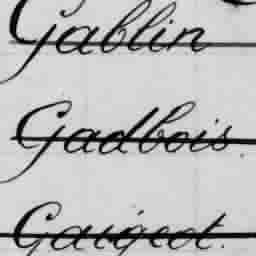 Gablin
Gadbois.
Gaigeot.